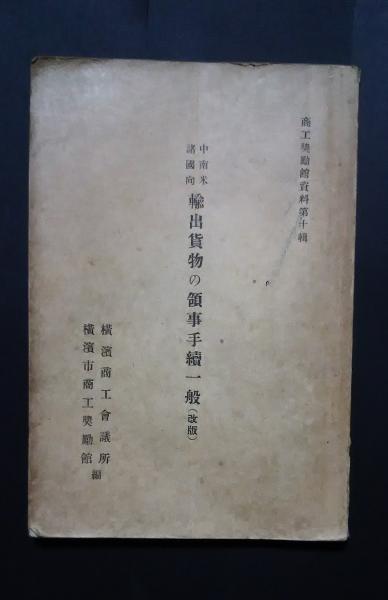 商工奬勵館資料第十輯
中南米
諸國向
輸出貨物の領事手續一般（改版）
橫濱商工會議所
橫濱市商工奬勵館
編